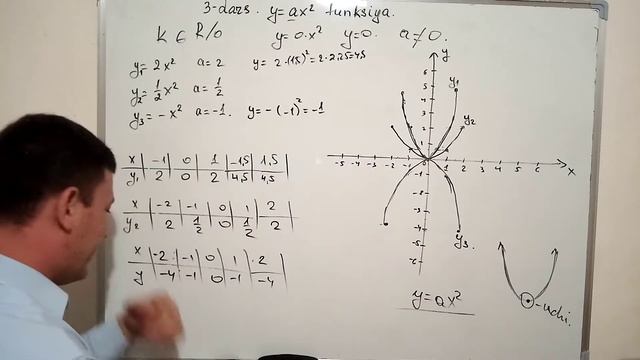 3-dars. y=ax² funksiya.
K ∈ R/0 y=0·x² y=0. a≠0.
y₁= 2x² a=2 y=2·(1,5)²=2·2,25=4,5
y₂= 1/2 x² a=1/2
y₃= -x² a=-1. y=-(-1)²=-1
x | -1 | 0 | 1 | -1,5 | 1,5
y₁ | 2 | 0 | 2 | 4,5 | 4,5
x | -2 | -1 | 0 | 1 | 2
y₂ | 2 | 1/2 | 0 | 1/2 | 2
x | -2 | -1 | 0 | 1 | 2
y | -4 | -1 | 0 | -1 | -4
y
6
5
4
3
2
1
y₁
y₂
-5 -4 -3 -2 -1 1 2 3 4 5 6 x
-1
-2
-3
-4
-5
-6
y₃.
y=ax²
-uchi.